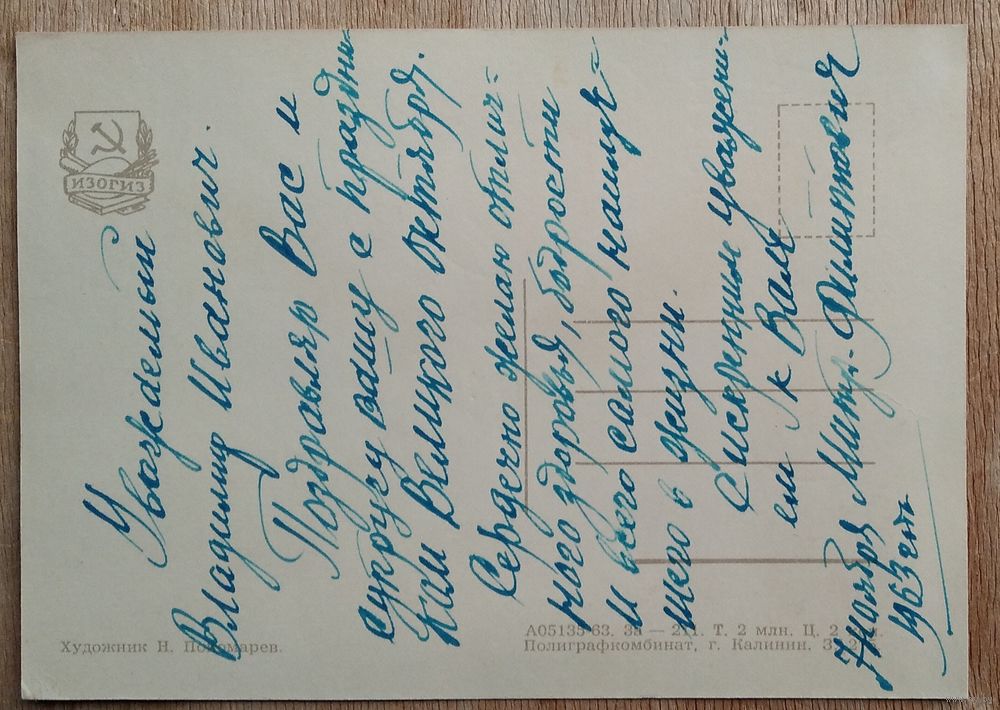 Уважаемый
Владимир Иванович.
Поздравляю Вас и
супругу вашу с праздни-
ком Великого октября.
Сердечно желаю отлич=
ного здоровья, бодрости
и всего самого наилуч=
шего в жизни.
С искренним уважени-
ем к Вам
Филиппович
7 ноября
1963 год
ИЗОГИЗ
Художник Н. Пономарев.
А05135-63. Т. 2 млн. Ц. 2
Полиграфкомбинат, г. Калинин.